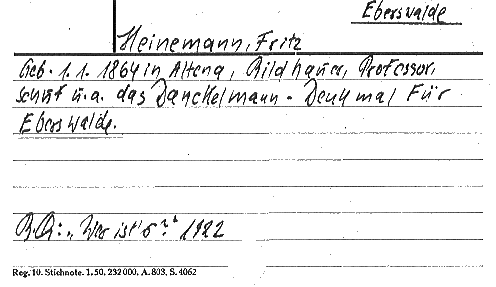 Eberswalde
Heinemann, Fritz
Geb. 1.1.1864 in Altena, Bildhauer, Professor,
schuf u.a. das Danckelmann-Denkmal für
Eberswalde.
B.Q.: „Wer ist's?" 1922
Reg. 10. Stichnote. 1. 50, 232 000, A. 803, S. 4062